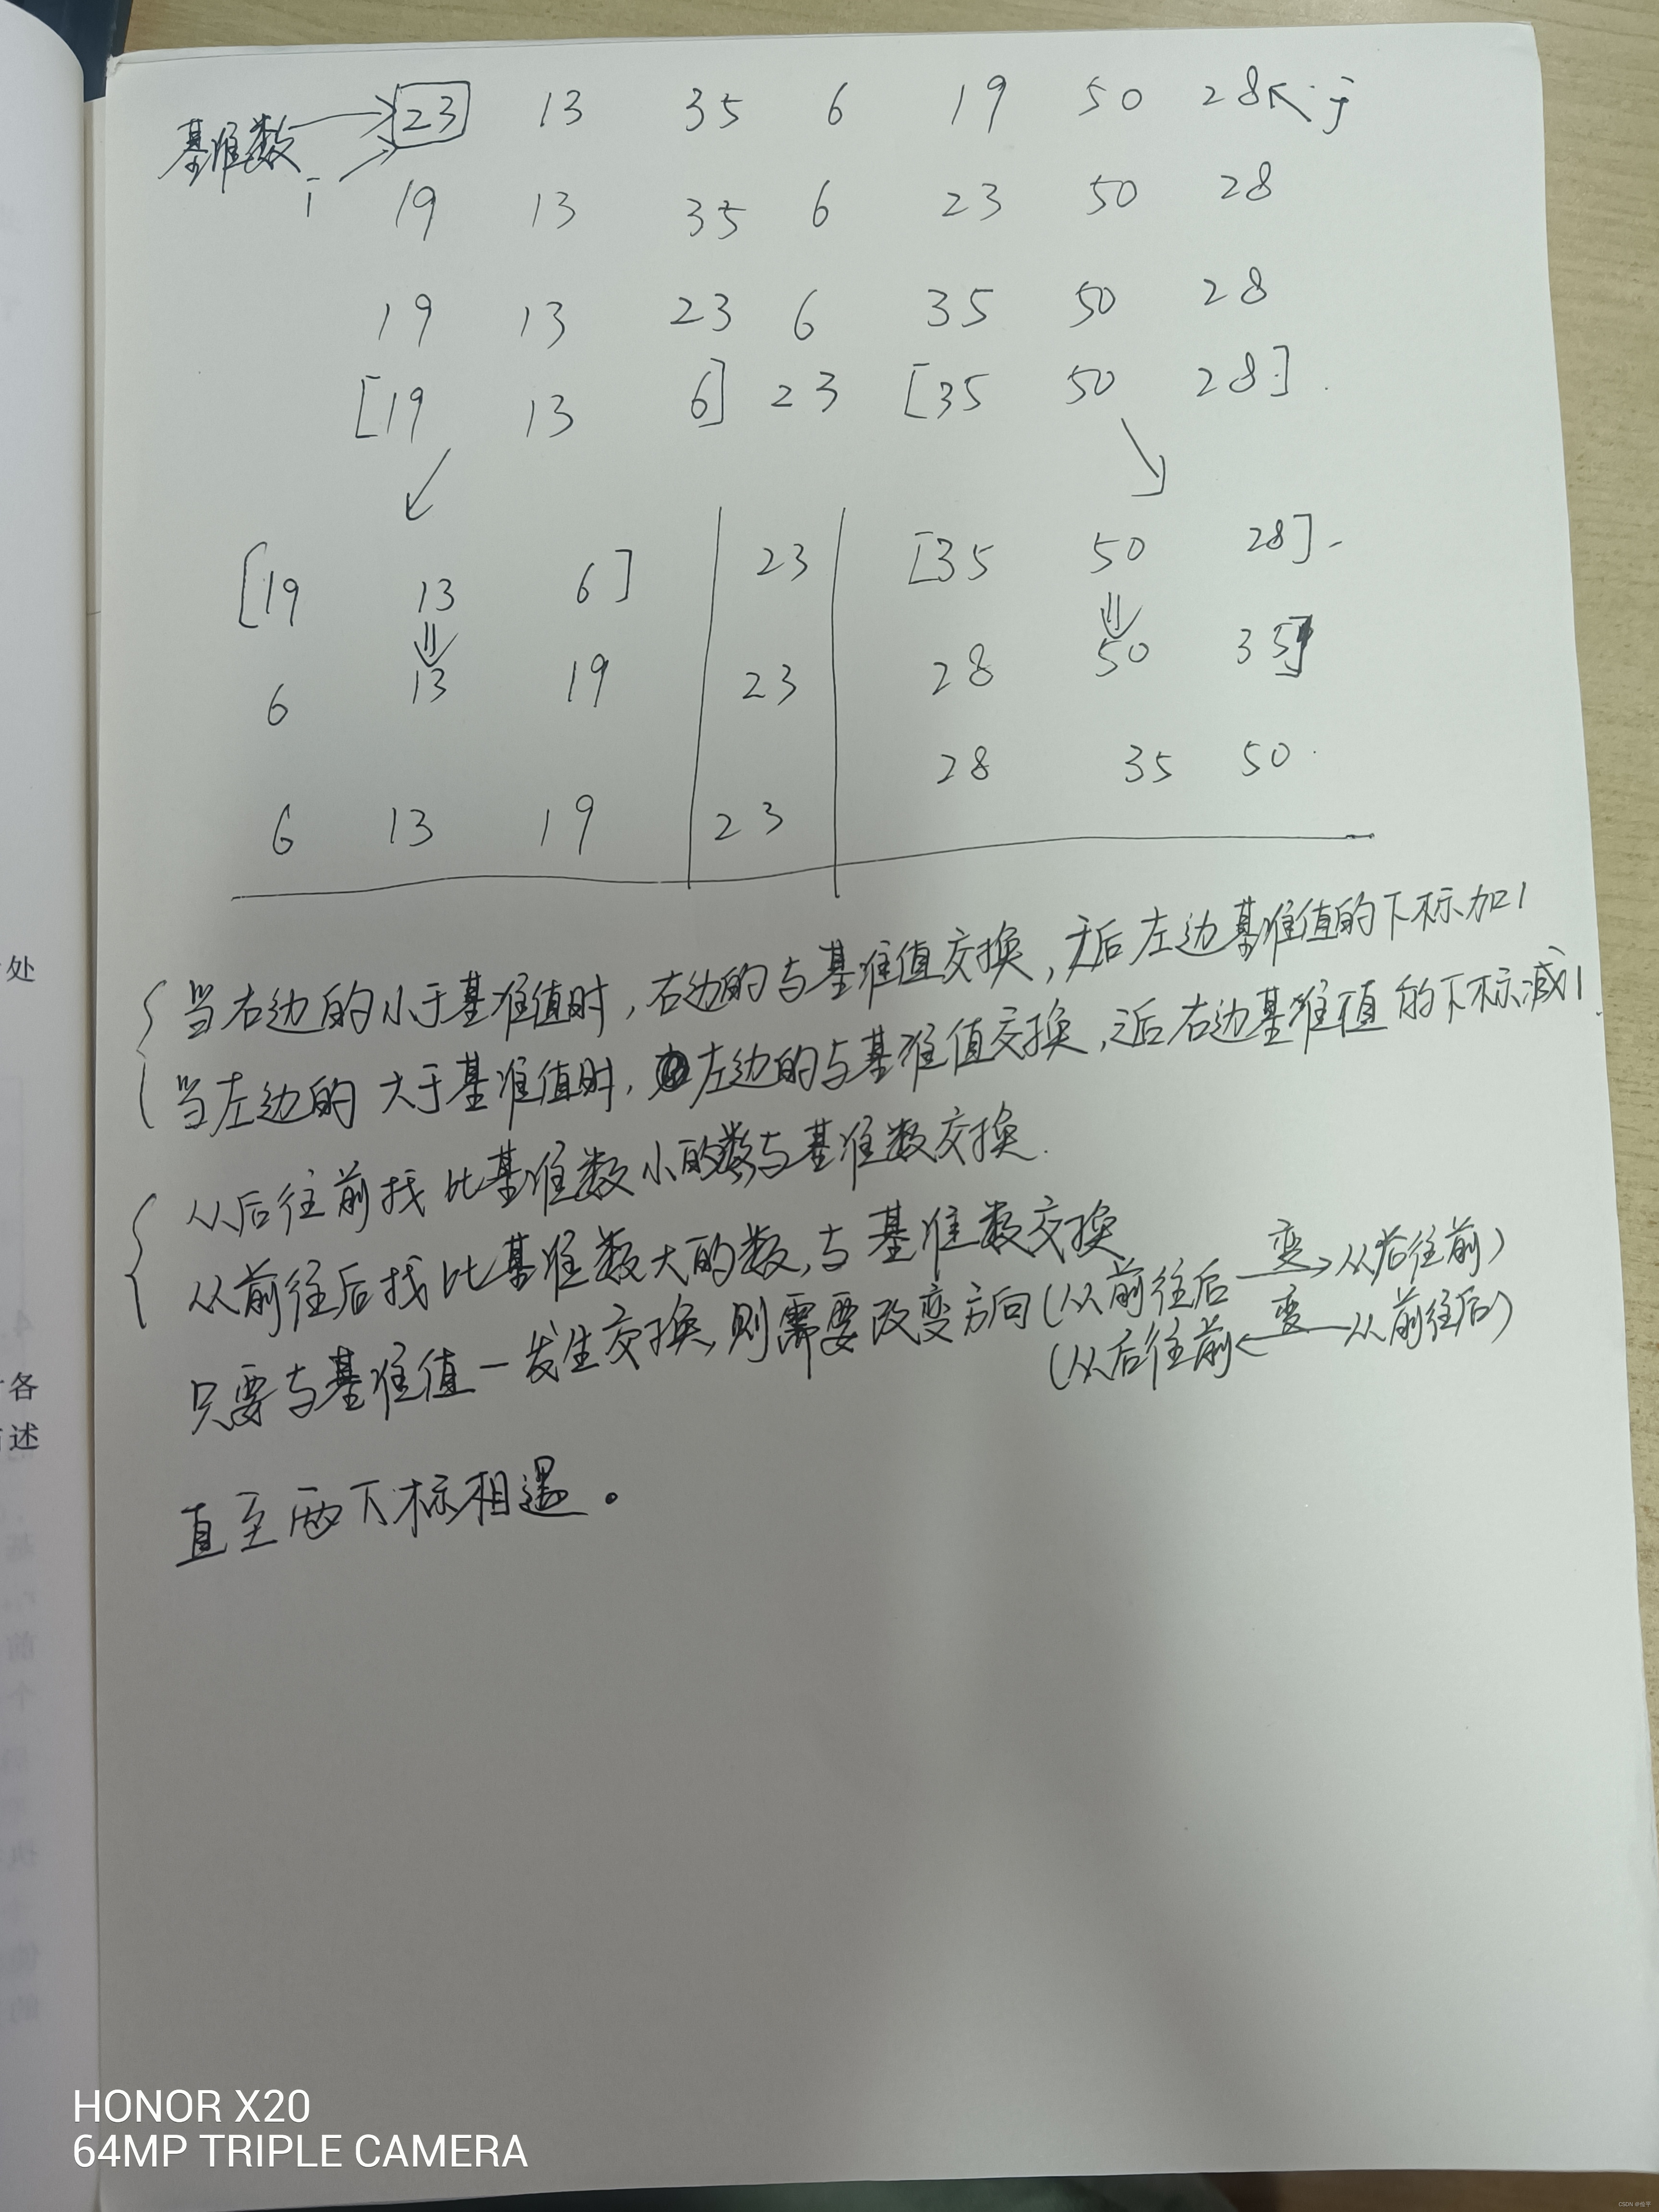 基准数 23 13 35 6 19 50 28 j
i 19 13 35 6 23 50 28
19 13 23 6 35 50 28
[19 13 6] 23 [35 50 28]
[19 13 6] 23 [35 50 28]
6 13 19 23 28 50 35]
28 35 50
6 13 19 23
当右边的小于基准值时,右边的与基准值交换,后左边基准值的下标加1
当左边的大于基准值时,左边的与基准值交换,之后右边基准值的下标减1
从后往前找比基准数小的数与基准数交换.
从前往后找比基准数大的数,与基准数交换
只要与基准值一发生交换,则需要改变方向(从前往后 变 从后往前)
(从后往前 变 从前往后)
直至两下标相遇。
处
4.
各
述
HONOR X20
64MP TRIPLE CAMERA